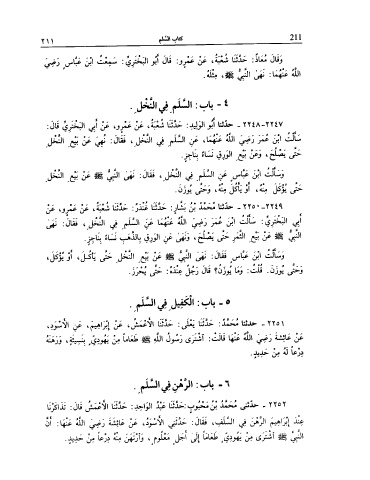 ٢١١ كتاب السلم 211
وَقَالَ مُعَاذٌ: حَدَّثَنَا شُعْبَةُ، عَنْ عَمْرٍو: قَالَ أَبُو الْبَخْتَرِيِّ: سَمِعْتُ ابْنَ عَبَّاسٍ رَضِيَ
اللَّهُ عَنْهُمَا: نَهَى النَّبِيُّ ﷺ، مِثْلَهُ.
٤ - باب: السَّلَمِ فِي النَّخْلِ.
٢٢٤٧-٢٢٤٨ - حدثنا أَبُو الْوَلِيدِ: حَدَّثَنَا شُعْبَةُ، عَنْ عَمْرٍو، عَنْ أَبِي الْبَخْتَرِيِّ قَالَ:
سَأَلْتُ ابْنَ عُمَرَ رَضِيَ اللَّهُ عَنْهُمَا، عَنِ السَّلَمِ فِي النَّخْلِ، فَقَالَ: نُهِيَ عَنْ بَيْعِ النَّخْلِ
حَتَّى يَصْلُحَ، وَعَنْ بَيْعِ الْوَرِقِ نَسَاءً بِنَاجِزٍ.
وَسَأَلْتُ ابْنَ عَبَّاسٍ عَنِ السَّلَمِ فِي النَّخْلِ، فَقَالَ: نَهَى النَّبِيُّ ﷺ عَنْ بَيْعِ النَّخْلِ
حَتَّى يُؤْكَلَ مِنْهُ، أَوْ يَأْكُلَ مِنْهُ، وَحَتَّى يُوزَنَ.
٢٢٤٩-٢٢٥٠ - حدثنا مُحَمَّدُ بْنُ بَشَّارٍ: حَدَّثَنَا غُنْدَرٌ: حَدَّثَنَا شُعْبَةُ، عَنْ عَمْرٍو، عَنْ
أَبِي الْبَخْتَرِيِّ: سَأَلْتُ ابْنَ عُمَرَ رَضِيَ اللَّهُ عَنْهُمَا عَنِ السَّلَمِ فِي النَّخْلِ، فَقَالَ: نَهَى
النَّبِيُّ ﷺ عَنْ بَيْعِ الثَّمَرِ حَتَّى يَصْلُحَ، وَنَهَى عَنِ الْوَرِقِ بِالذَّهَبِ نَسَاءً بِنَاجِزٍ.
وَسَأَلْتُ ابْنَ عَبَّاسٍ فَقَالَ: نَهَى النَّبِيُّ ﷺ عَنْ بَيْعِ النَّخْلِ حَتَّى يَأْكُلَ، أَوْ يُؤْكَلَ،
وَحَتَّى يُوزَنَ. قُلْتُ: وَمَا يُوزَنُ؟ قَالَ رَجُلٌ عِنْدَهُ: حَتَّى يُحْرَزَ.
٥ - باب: الْكَفِيلِ فِي السَّلَمِ.
٢٢٥١ - حدثنا مُحَمَّدٌ: حَدَّثَنَا يَعْلَى: حَدَّثَنَا الْأَعْمَشُ، عَنْ إِبْرَاهِيمَ، عَنِ الْأَسْوَدِ،
عَنْ عَائِشَةَ رَضِيَ اللَّهُ عَنْهَا قَالَتْ: اشْتَرَى رَسُولُ اللَّهِ ﷺ طَعَامًا مِنْ يَهُودِيٍّ بِنَسِيئَةٍ، وَرَهَنَهُ
دِرْعًا لَهُ مِنْ حَدِيدٍ.
٦ - باب: الرَّهْنِ فِي السَّلَمِ.
٢٢٥٢ - حدثني مُحَمَّدُ بْنُ مَحْبُوبٍ: حَدَّثَنَا عَبْدُ الْوَاحِدِ: حَدَّثَنَا الْأَعْمَشُ قَالَ: تَذَاكَرْنَا
عِنْدَ إِبْرَاهِيمَ الرَّهْنَ فِي السَّلَفِ، فَقَالَ: حَدَّثَنِي الْأَسْوَدُ، عَنْ عَائِشَةَ رَضِيَ اللَّهُ عَنْهَا: أَنَّ
النَّبِيَّ ﷺ اشْتَرَى مِنْ يَهُودِيٍّ طَعَامًا إِلَى أَجَلٍ مَعْلُومٍ، وَارْتَهَنَ مِنْهُ دِرْعًا مِنْ حَدِيدٍ.